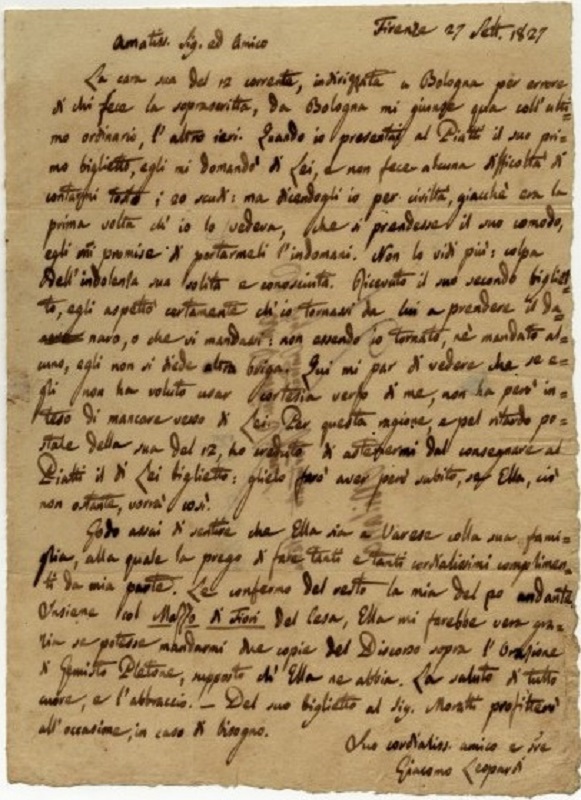 Firenze 27 Sett. 1827
Amatiss. Sig. ed Amico
La cara sua del 12 corrente, indirizzata a Bologna per errore
di chi fece la soprascritta, da Bologna mi giunse qua coll'ulti-
mo ordinario, l'altro ieri. Quando io presentai al Piatti il suo pri-
mo biglietto, egli mi domandò di Lei, e non fece alcuna difficoltà di
contarmi tosto i 20 scudi: ma dicendogli io per civiltà, giacchè era la
prima volta ch'io lo vedeva, che si prendesse il suo comodo,
egli mi promise di portarmeli l'indomani. Non lo vidi più: colpa
dell'indolenza sua solita e conosciuta. Ricevuto il suo secondo bigliet-
to, egli aspettò certamente ch'io tornassi da lui a prendere il da=
naro, o che vi mandassi: non essendo io tornato, nè mandato al=
cuno, egli non si diede altra briga. Qui mi par di vedere che se e=
gli non ha voluto usar cortesia verso di me, non ha però in=
teso di mancare verso di Lei. Per questa ragione, e pel ritardo po=
stale della sua del 12, ho creduto di astenermi dal consegnare al
Piatti il di Lei biglietto: glielo farò aver però subito, se Ella, ciò
non ostante, vorrà così.
Godo assai di sentire che Ella sia a Varese colla sua fami=
glia, alla quale la prego di fare tanti e tanti cordialissimi complimen=
ti da mia parte. Le confermo del resto la mia del po andante.
Insieme col Mazzo di Fiori del Cesa, Ella mi farebbe vera gra=
zia se potesse mandarmi due copie del Discorso sopra l'Orazione
di Gemisto Pletone, supposto ch'Ella ne abbia. La saluto di tutto
cuore, e l'abbraccio. — Del suo biglietto al Sig. Moratti profitterò
all'occasione, in caso di bisogno.
Suo cordialiss. amico e
Giacomo Leopardi